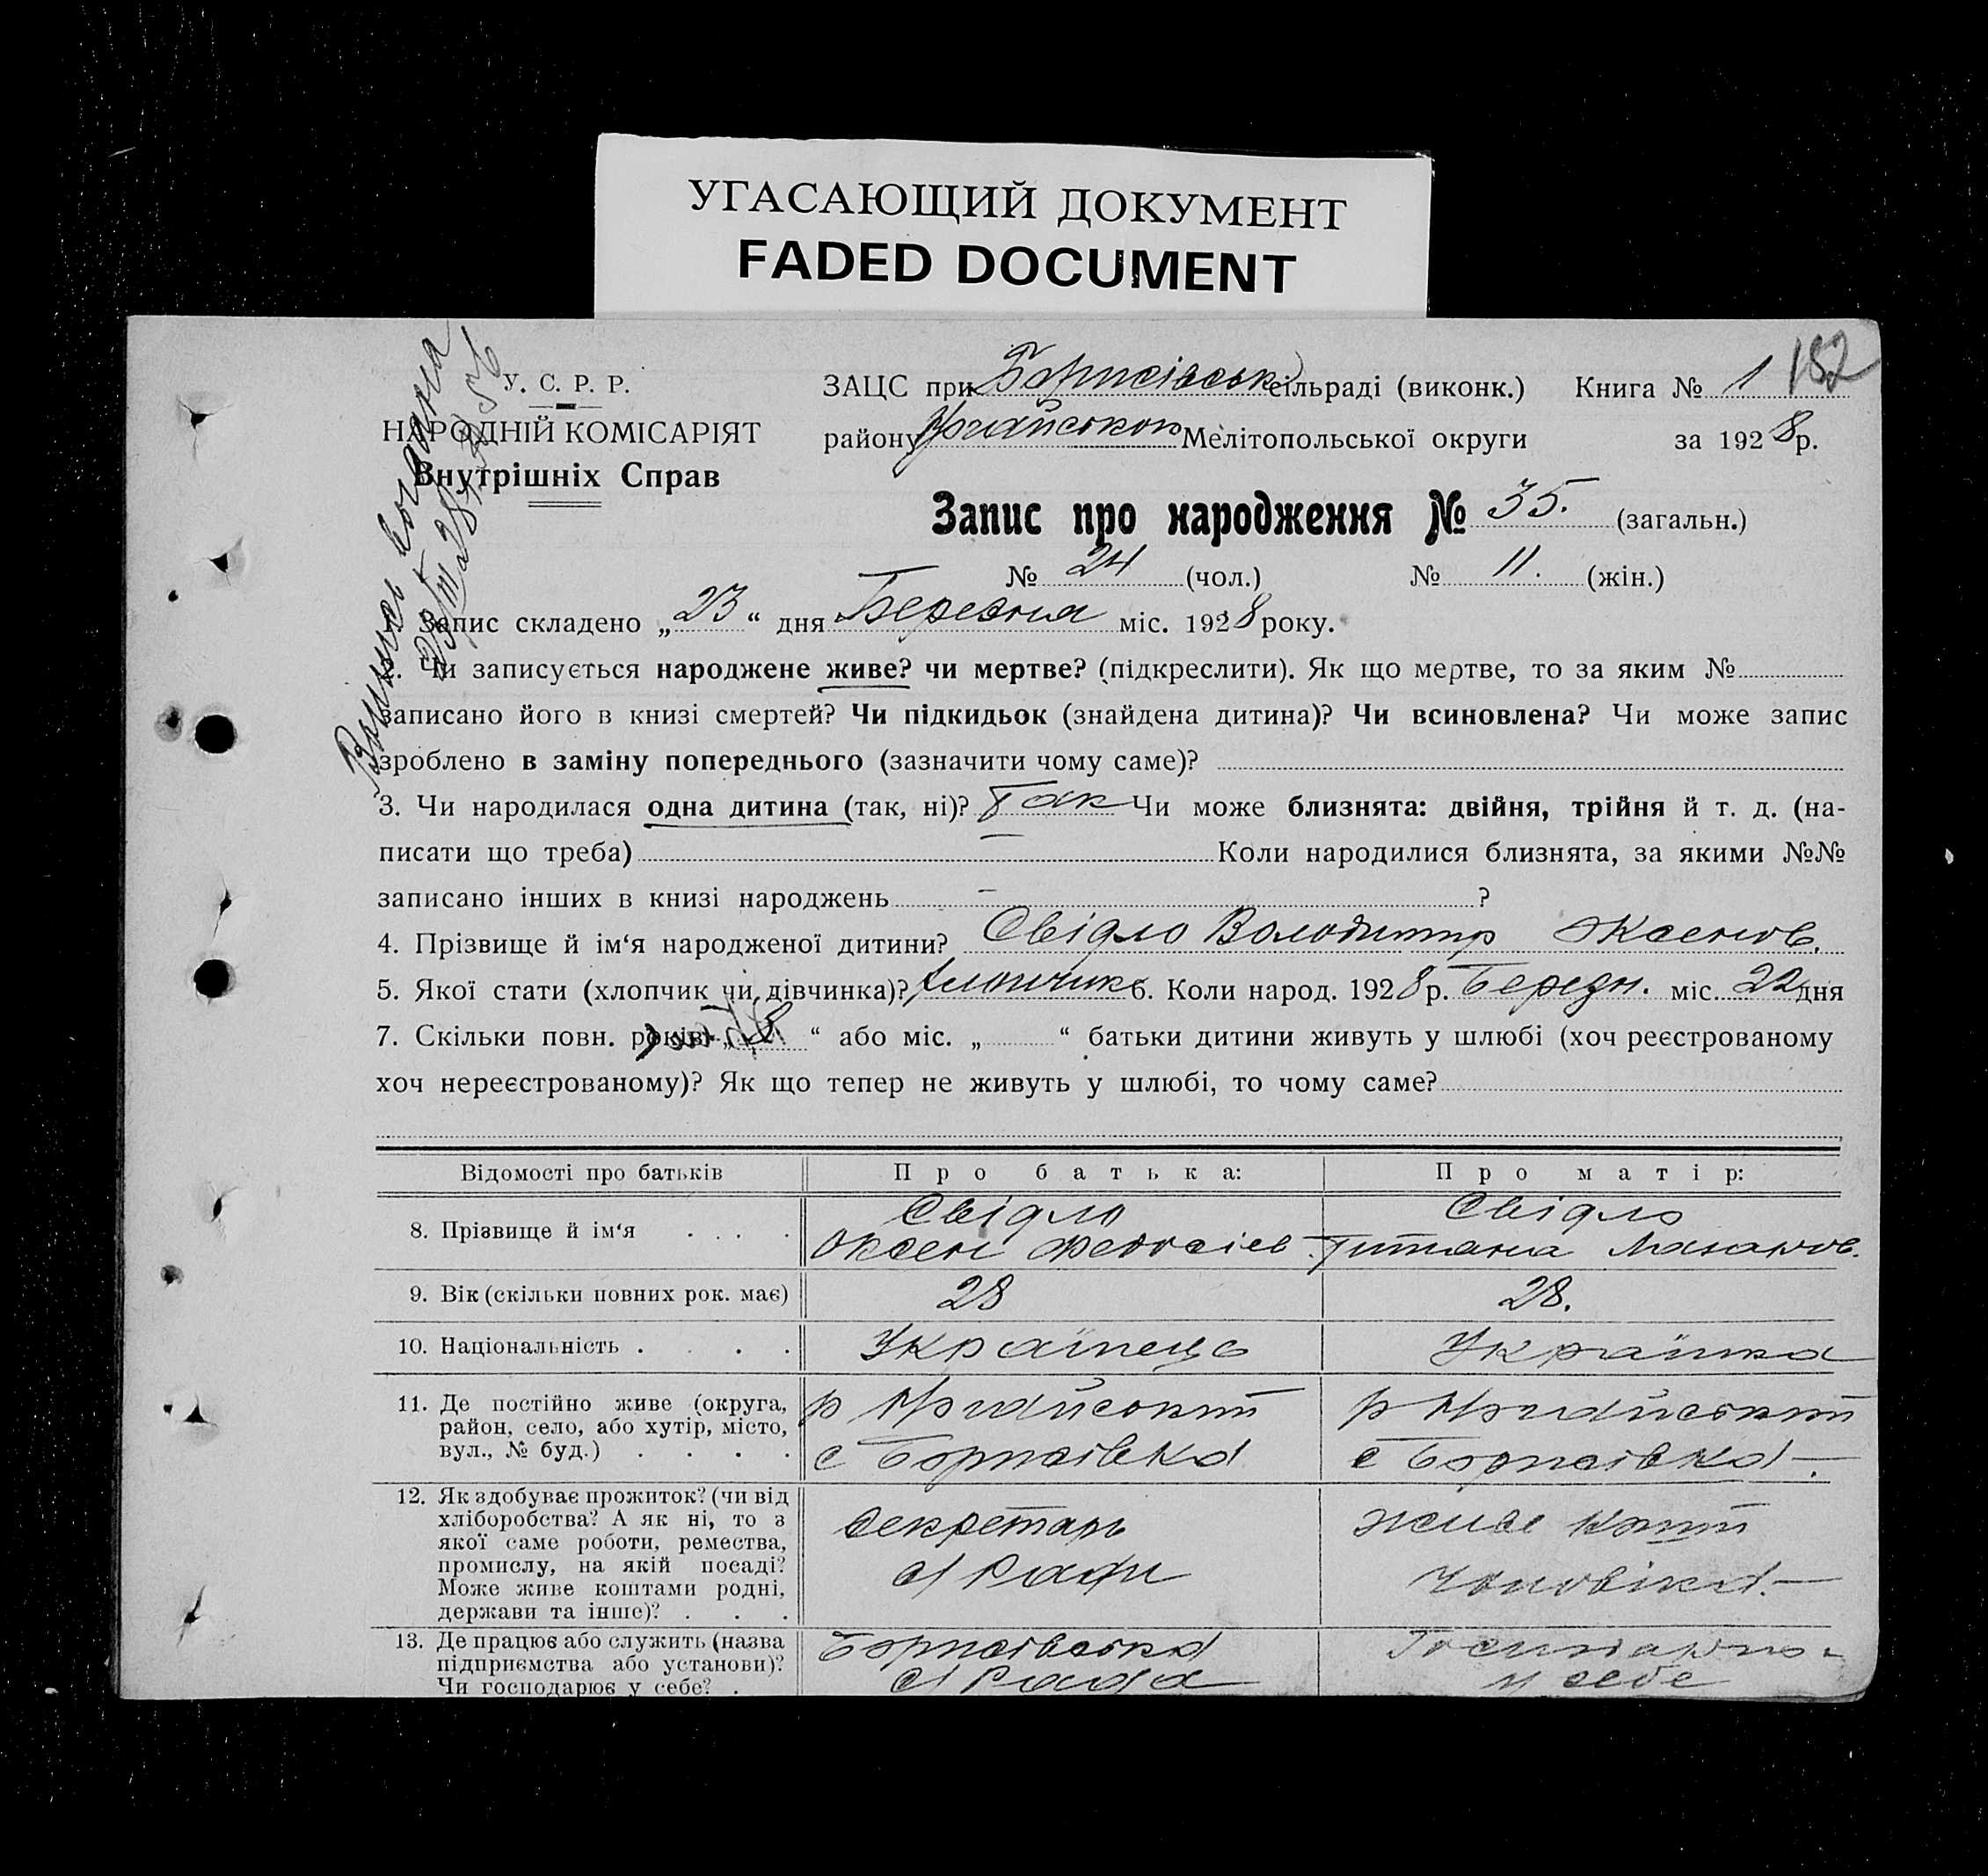 УГАСАЮЩИЙ ДОКУМЕНТ
FADED DOCUMENT
182
У. С. Р. Р.
НАРОДНІЙ КОМІСАРІЯТ
Внутрішніх Справ
ЗАЦС при Борисівськ сільраді (виконк.) Книга № 1
району Мелітопольської округи за 1928 р.
Запис про народження № 35. (загальн.)
№ 24 (чол.) № 11. (жін.)
Запис складено „23“ дня Березня міс. 1928 року.
2. Чи записується народжене живе? чи мертве? (підкреслити). Як що мертве, то за яким №
записано його в книзі смертей? Чи підкидьок (знайдена дитина)? Чи всиновлена? Чи може запис
зроблено в заміну попереднього (зазначити чому саме)?
3. Чи народилася одна дитина (так, ні)? Так Чи може близнята: двійня, трійня й т. д. (на-
писати що треба) — Коли народилися близнята, за якими №№
записано інших в книзі народжень — ?
4. Прізвище й ім‘я народженої дитини? Свідло Володимир Оксенов.
5. Якої стати (хлопчик чи дівчинка)? Хлопчик 6. Коли народ. 1928 р. Березн. міс. 22 дня
7. Скільки повн. років „ “ або міс. „ “ батьки дитини живуть у шлюбі (хоч реєстрованому
хоч нереєстрованому)? Як що тепер не живуть у шлюбі, то чому саме?
Відомості про батьків Про батька: Про матір:
8. Прізвище й ім‘я . . . .
Свідло
Оксен Федосіев
Свідло
Титяна Макаров.
9. Вік (скільки повних рок. має) 28 28.
10. Національність . . . . Українець Українка
11. Де постійно живе (округа,
район, село, або хутір, місто,
вул., № буд.) . . . .
р
с Борисівка
р
с Борисівка —.
12. Як здобуває прожиток? (чи від
хліборобства? А як ні, то з
якої саме роботи, ремества,
промислу, на якій посаді?
Може живе коштами родні,
держави та інше)? . . .
секретарь
с/Ради
живе кошт
чоловіка.—
13. Де працює або служить (назва
підприємства або установи)?
Чи господарює у себе? .
Борисівська
с/Рада
у себе